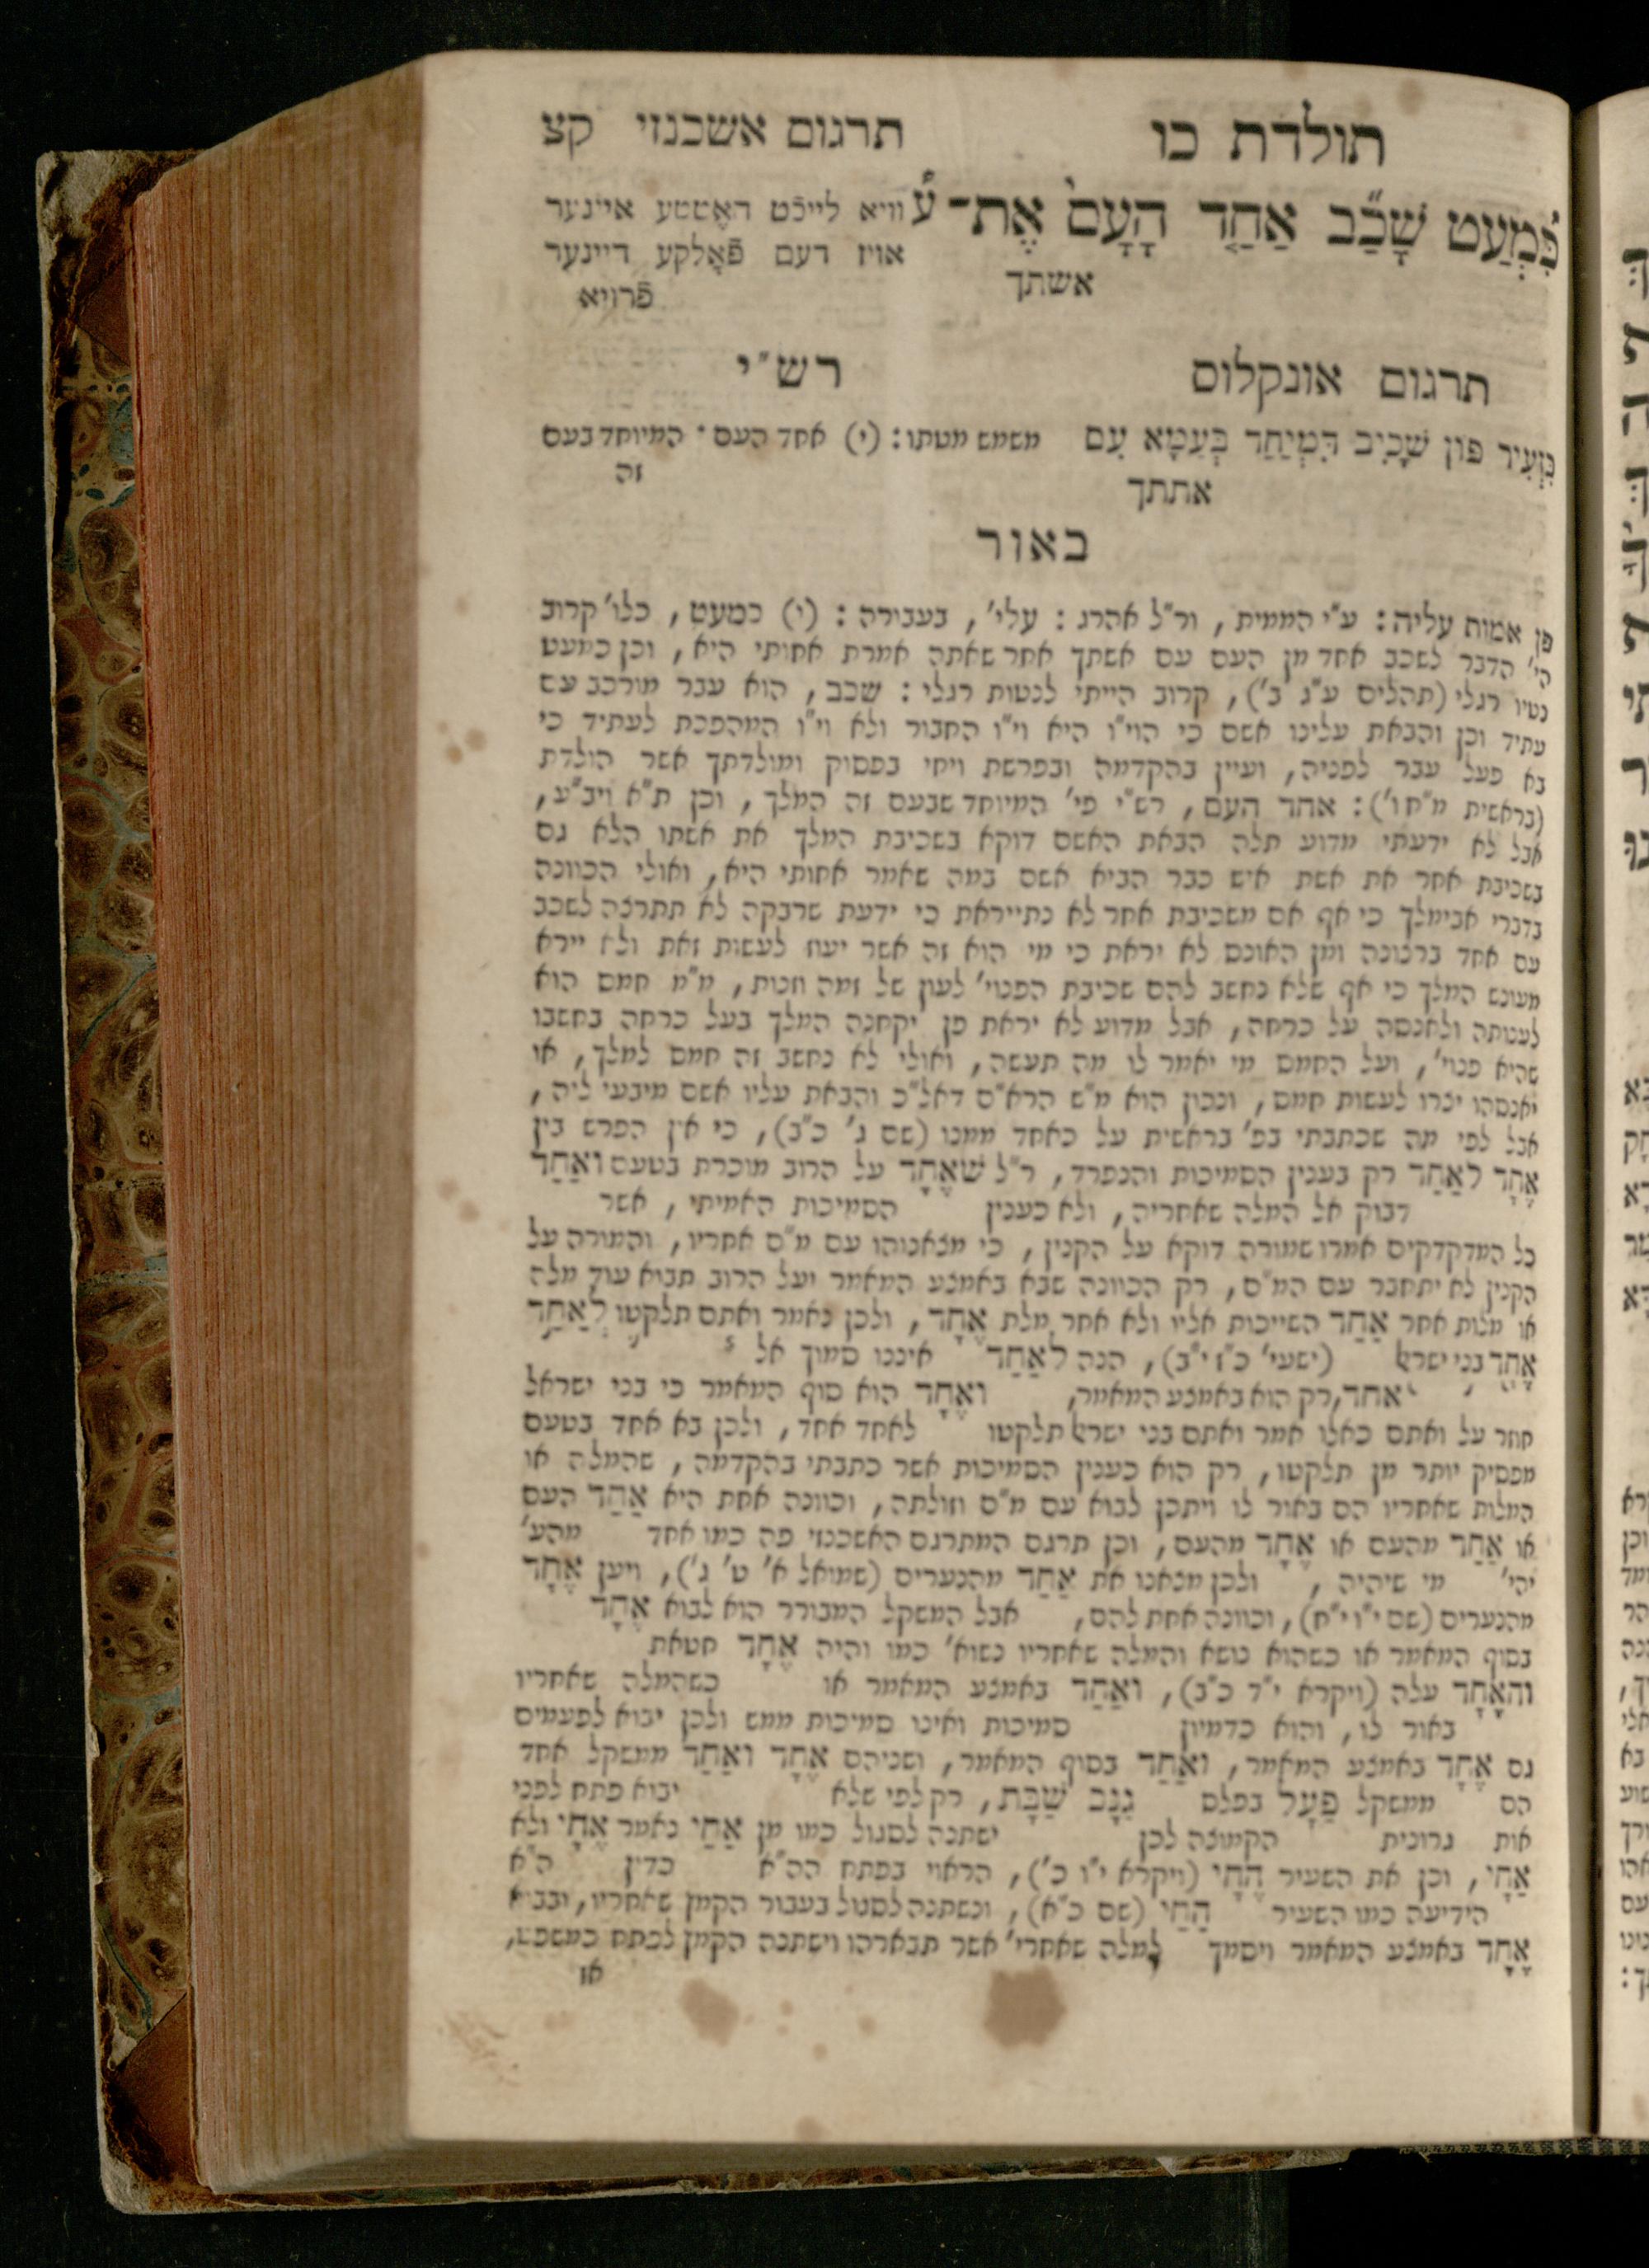 תולדת כו
תרגום אשכנזי קצ
כִּמְעַט שָׁכַב אַחַד הָעָם אֶת־ ע
אשתך
וויא לייכט האֶטטע איינער
אויז דעם פֿאָלקע דיינער
פֿרויא
תרגום אונקלוס
כִּזְעִיר פּוֹן שְׁכִיב דִּמְיַחַד בְּעַמָּא עִם
אתתך
רש״י
משמש מטתו: (י) אחד העם · המיוחד בעם
זה
באור
פן אמות עליה: ע״י הממית, ור״ל אהרג: עלי', בעבורה: (י) כמעט, כלו' קרוב
הי' הדבר לשכב אחד מן העם עם אשתך אחר שאתה אמרת אחותי היא, וכן כמעט
נטיו רגלי (תהלים ע״ג ב'), קרוב הייתי לנטות רגלי: שכב, הוא עבר מורכב עם
עתיד וכן והבאת עלינו אשם כי הוי״ו היא וי״ו החבור ולא וי״ו המהפכת לעתיד כי
בא פעל עבר לפניה, ועיין בהקדמה ובפרשת ויחי בפסוק ומולדתך אשר הולדת
(בראשית מ״ח ו'): אחד העם, רש״י פי' המיוחד שבעם זה המלך, וכן ת״א ויב״ע,
אבל לא ידעתי מדוע תלה הבאת האשם דוקא בשכיבת המלך את אשתו הלא גם
בשכיבת אחר את אשת איש כבר הביא אשם במה שאמר אחותי היא, ואולי הכוונה
בדברי אבימלך כי אף אם משכיבת אחר לא נתייראת כי ידעת שרבקה לא תתרצה לשכב
עם אחד ברצונה ומן האונס לא יראת כי מי הוא זה אשר יעוז לעשות זאת ולא יירא
מעונש המלך כי אף שלא נחשב להם שכיבת הפנוי' לעון של זמה וזנות, מ״מ חמס הוא
לענותה ולאנסה על כרחה, אבל מדוע לא יראת פן יקחנה המלך בעל כרחה בחשבו
שהיא פנוי', ועל החמס מי יאמר לו מה תעשה, ואולי לא נחשב זה חמס למלך, או
יאנסהו יצרו לעשות חמס, ונכון הוא מ״ש הרא״ם דאל״כ והבאת עליו אשם מיבעי ליה,
אבל לפי מה שכתבתי בפ' בראשית על כאחד ממנו (שם ג' כ״ב), כי אין הפרש בין
אֶחָד לאַחַד רק בענין הסמיכות והנפרד, ר״ל שאֶחָד על הרוב מוכרת בטעם ואַחַד
דבוק אל המלה שאחריה, ולא כענין הסמיכות האמיתי, אשר
כל המדקדקים אמרו שמורה דוקא על הקנין, כי מצאנוהו עם מ״ם אחריו, והמורה על
הקנין לא יתחבר עם המ״ם, רק הכוונה שבא באמצע המאמר ועל הרוב תבוא עוד מלה
או מלות אחר אַחַד השייכות אליו ולא אחר מלת אֶחָד, ולכן נאמר ואתם תלקטו לְאַחַד
אֶחָד בני ישראל (ישעי' כ״ז י״ב), הנה לאַחַד איננו סמוך אל
אחד, רק הוא באמצע המאמר, ואֶחָד הוא סוף המאמר כי בני ישראל
חוזר על ואתם כאלו אמר ואתם בני ישראל תלקטו לאחד אחד, ולכן בא אחד בטעם
מפסיק יותר מן תלקטו, רק הוא כענין הסמיכות אשר כתבתי בהקדמה, שהמלה או
המלות שאחריו הם באור לו ויתכן לבוא עם מ״ם וזולתה, וכוונה אחת היא אַחַד העם
או אַחַד מהעם או אֶחָד מהעם, וכן תרגם המתרגם האשכנזי פה כמו אחד מהע'
יהי' מי שיהיה, ולכן מצאנו את אַחַד מהנערים (שמואל א' ט' ג'), ויען אֶחָד
מהנערים (שם י״ו י״ח), וכוונה אחת להם, אבל המשקל המבורר הוא לבוא אֶחָד
בסוף המאמר או כשהוא נושא והמלה שאחריו נשוא' כמו והיה אֶחָד חטאת
והאֶחָד עלה (ויקרא י״ד כ״ב), ואַחַד באמצע המאמר או כשהמלה שאחריו
באור לו, והוא כדמיון סמיכות ואינו סמיכות ממש ולכן יבוא לפעמים
גם אֶחָד באמצע המאמר, ואַחַד בסוף המאמר, ושניהם אֶחָד ואַחַד ממשקל אחד
הם ממשקל פַּעָל בפלס גַּנָּב שַׁבָּת, רק לפי שלא יבוא פתח לפני
אות גרונית הקמוצה לכן ישתנה לסגול כמו מן אַחַי נאמר אֶחָי ולא
אַחָי, וכן את השעיר הֶחָי (ויקרא י״ו כ'), הראוי בפתח הה״א כדין ה״א
הידיעה כמו השעיר הַחַי (שם כ״א), ונשתנה לסגול בעבור הקמץ שאחריו, ובבוא
אֶחָד באמצע המאמר ויסמך למלה שאחרי' אשר תבארהו וישתנה הקמץ לפתח כמשפט,
או